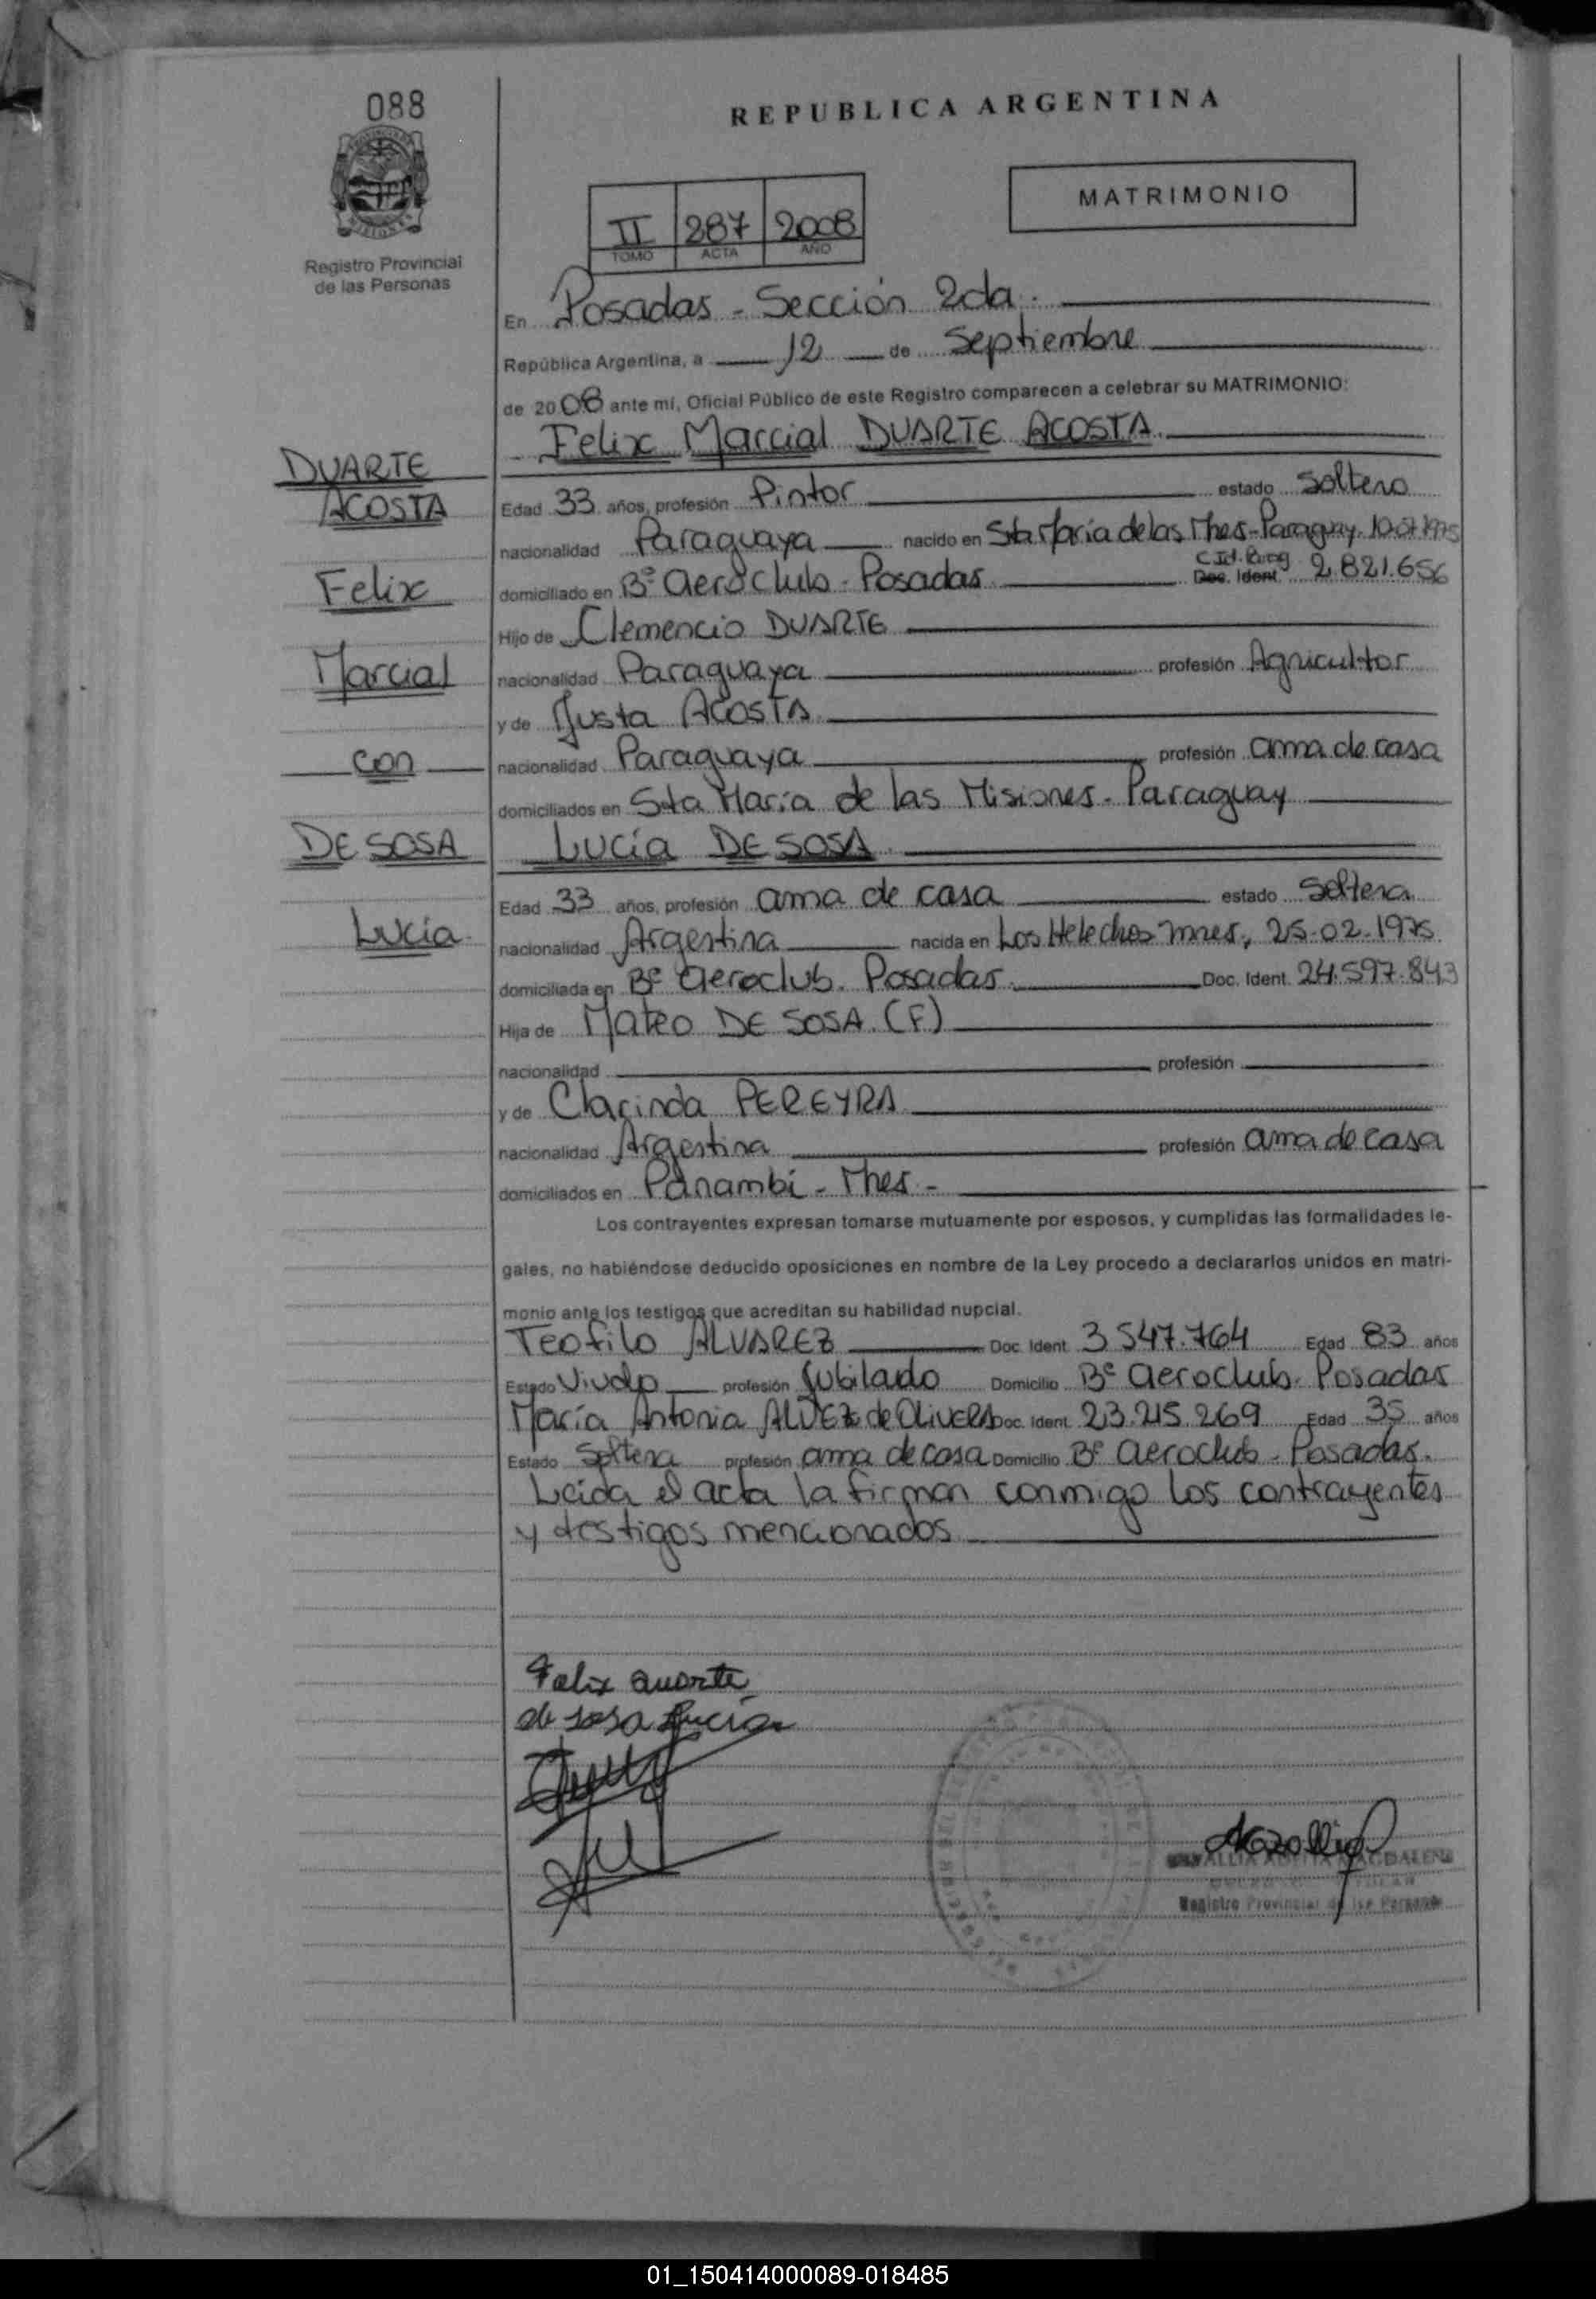 088
REPUBLICA ARGENTINA
MATRIMONIO
II 287 2008
TOMO ACTA AÑO
Registro Provincial
de las Personas
En Posadas - Sección 2da.
República Argentina, a 12 de Septiembre
de 2008 ante mí, Oficial Público de este Registro comparecen a celebrar su MATRIMONIO:
Felix Marcial DUARTE ACOSTA
DUARTE
ACOSTA
Felix
Marcial
con
DE SOSA
Lucía
Edad 33 años, profesión Pintor estado Soltero
nacionalidad Paraguaya nacido en Sta María de las Mnes-Paraguay. 10.07.1975
C.Id. Parag
domiciliado en Bº Aeroclub - Posadas Doc. Ident. 2.821.656
Hijo de Clemencio DUARTE
nacionalidad Paraguaya profesión Agricultor
y de Justa ACOSTA
nacionalidad Paraguaya profesión ama de casa
domiciliados en Sta María de las Misiones - Paraguay
Lucía DE SOSA
Edad 33 años, profesión ama de casa estado Soltera
nacionalidad Argentina nacida en Los Helechos Mnes, 25.02.1975
domiciliada en Bº Aeroclub. Posadas Doc. Ident. 24.597.843
Hija de Mateo DE SOSA (F)
nacionalidad profesión
y de Clarinda PEREYRA
nacionalidad Argentina profesión ama de casa
domiciliados en Panambí - Mnes -
Los contrayentes expresan tomarse mutuamente por esposos, y cumplidas las formalidades le-
gales, no habiéndose deducido oposiciones en nombre de la Ley procedo a declararlos unidos en matri-
monio ante los testigos que acreditan su habilidad nupcial.
Teofilo ALVAREZ Doc. Ident. 3.547.764 Edad 83 años
Estado Viudo profesión Jubilado Domicilio Bº Aeroclub. Posadas
María Antonia ALVEZ de OLIVERA Doc. Ident. 23.215.269 Edad 35 años
Estado Soltera profesión ama de casa Domicilio Bº Aeroclub - Posadas.
Leida el acta la firman conmigo los contrayentes
y testigos mencionados
Felix Duarte
de sosa Lucía
MAGDALENA
Registro Provincial de las Personas
01_150414000089-018485